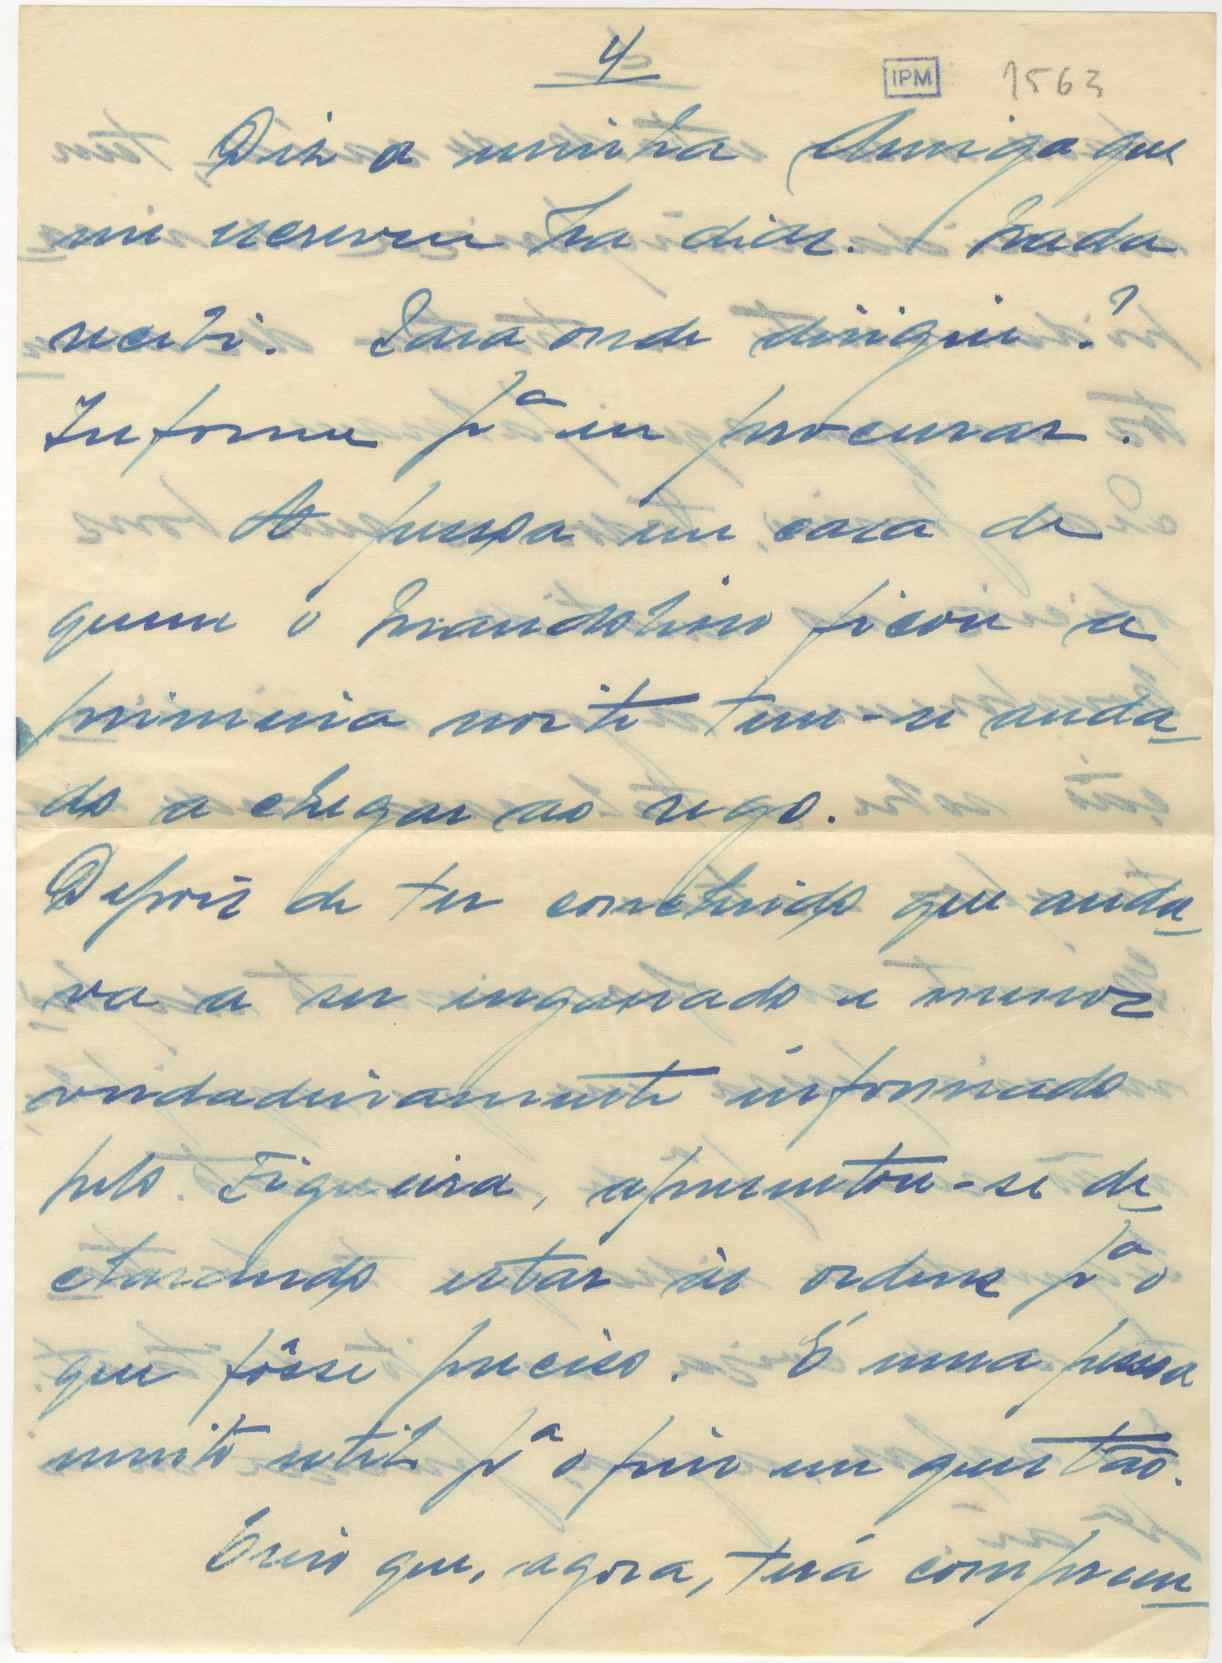 4
IPM 1563
Diz a minha Amiga que
me escreveu ha dias. Nada
recebi. Para onde dirigiu?
Informe pª eu procurar.
A pessoa em casa de
quem o Mandolino ficou a
primeira noite tem-se anda
do a chegar ao rego.
Depois de ter concluido que anda
va a ser enganado e menos
verdadeiramente informado
pelo Figueira, apresentou-se de
clarando estar às ordens pª o
que fôsse preciso. É uma pessoa
muito util pª o fim em questão.
Creio que, agora, terá compreen